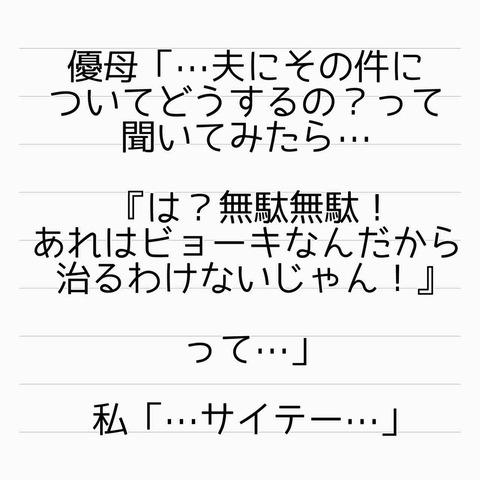 優母「…夫にその件に
ついてどうするの？って
聞いてみたら…
『は？無駄無駄！
あれはビョーキなんだから
治るわけないじゃん！』
って…」
私「…サイテー…」